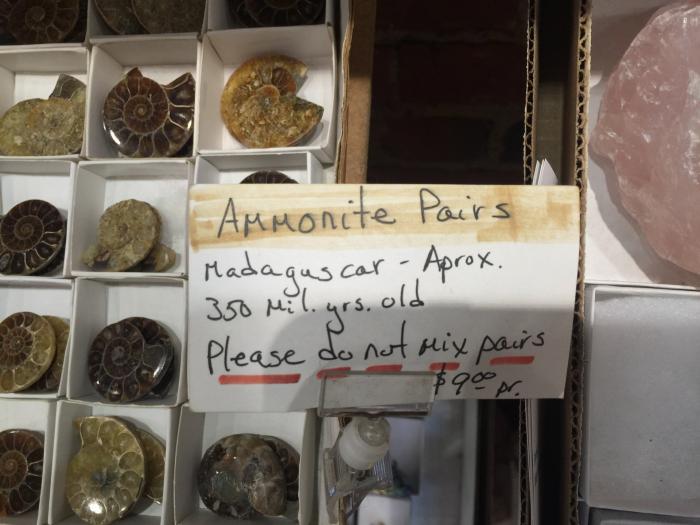 Ammonite Pairs
Madagascar - Aprox.
350 Mil. yrs. old
Please do not mix pairs
$9.00 pr.